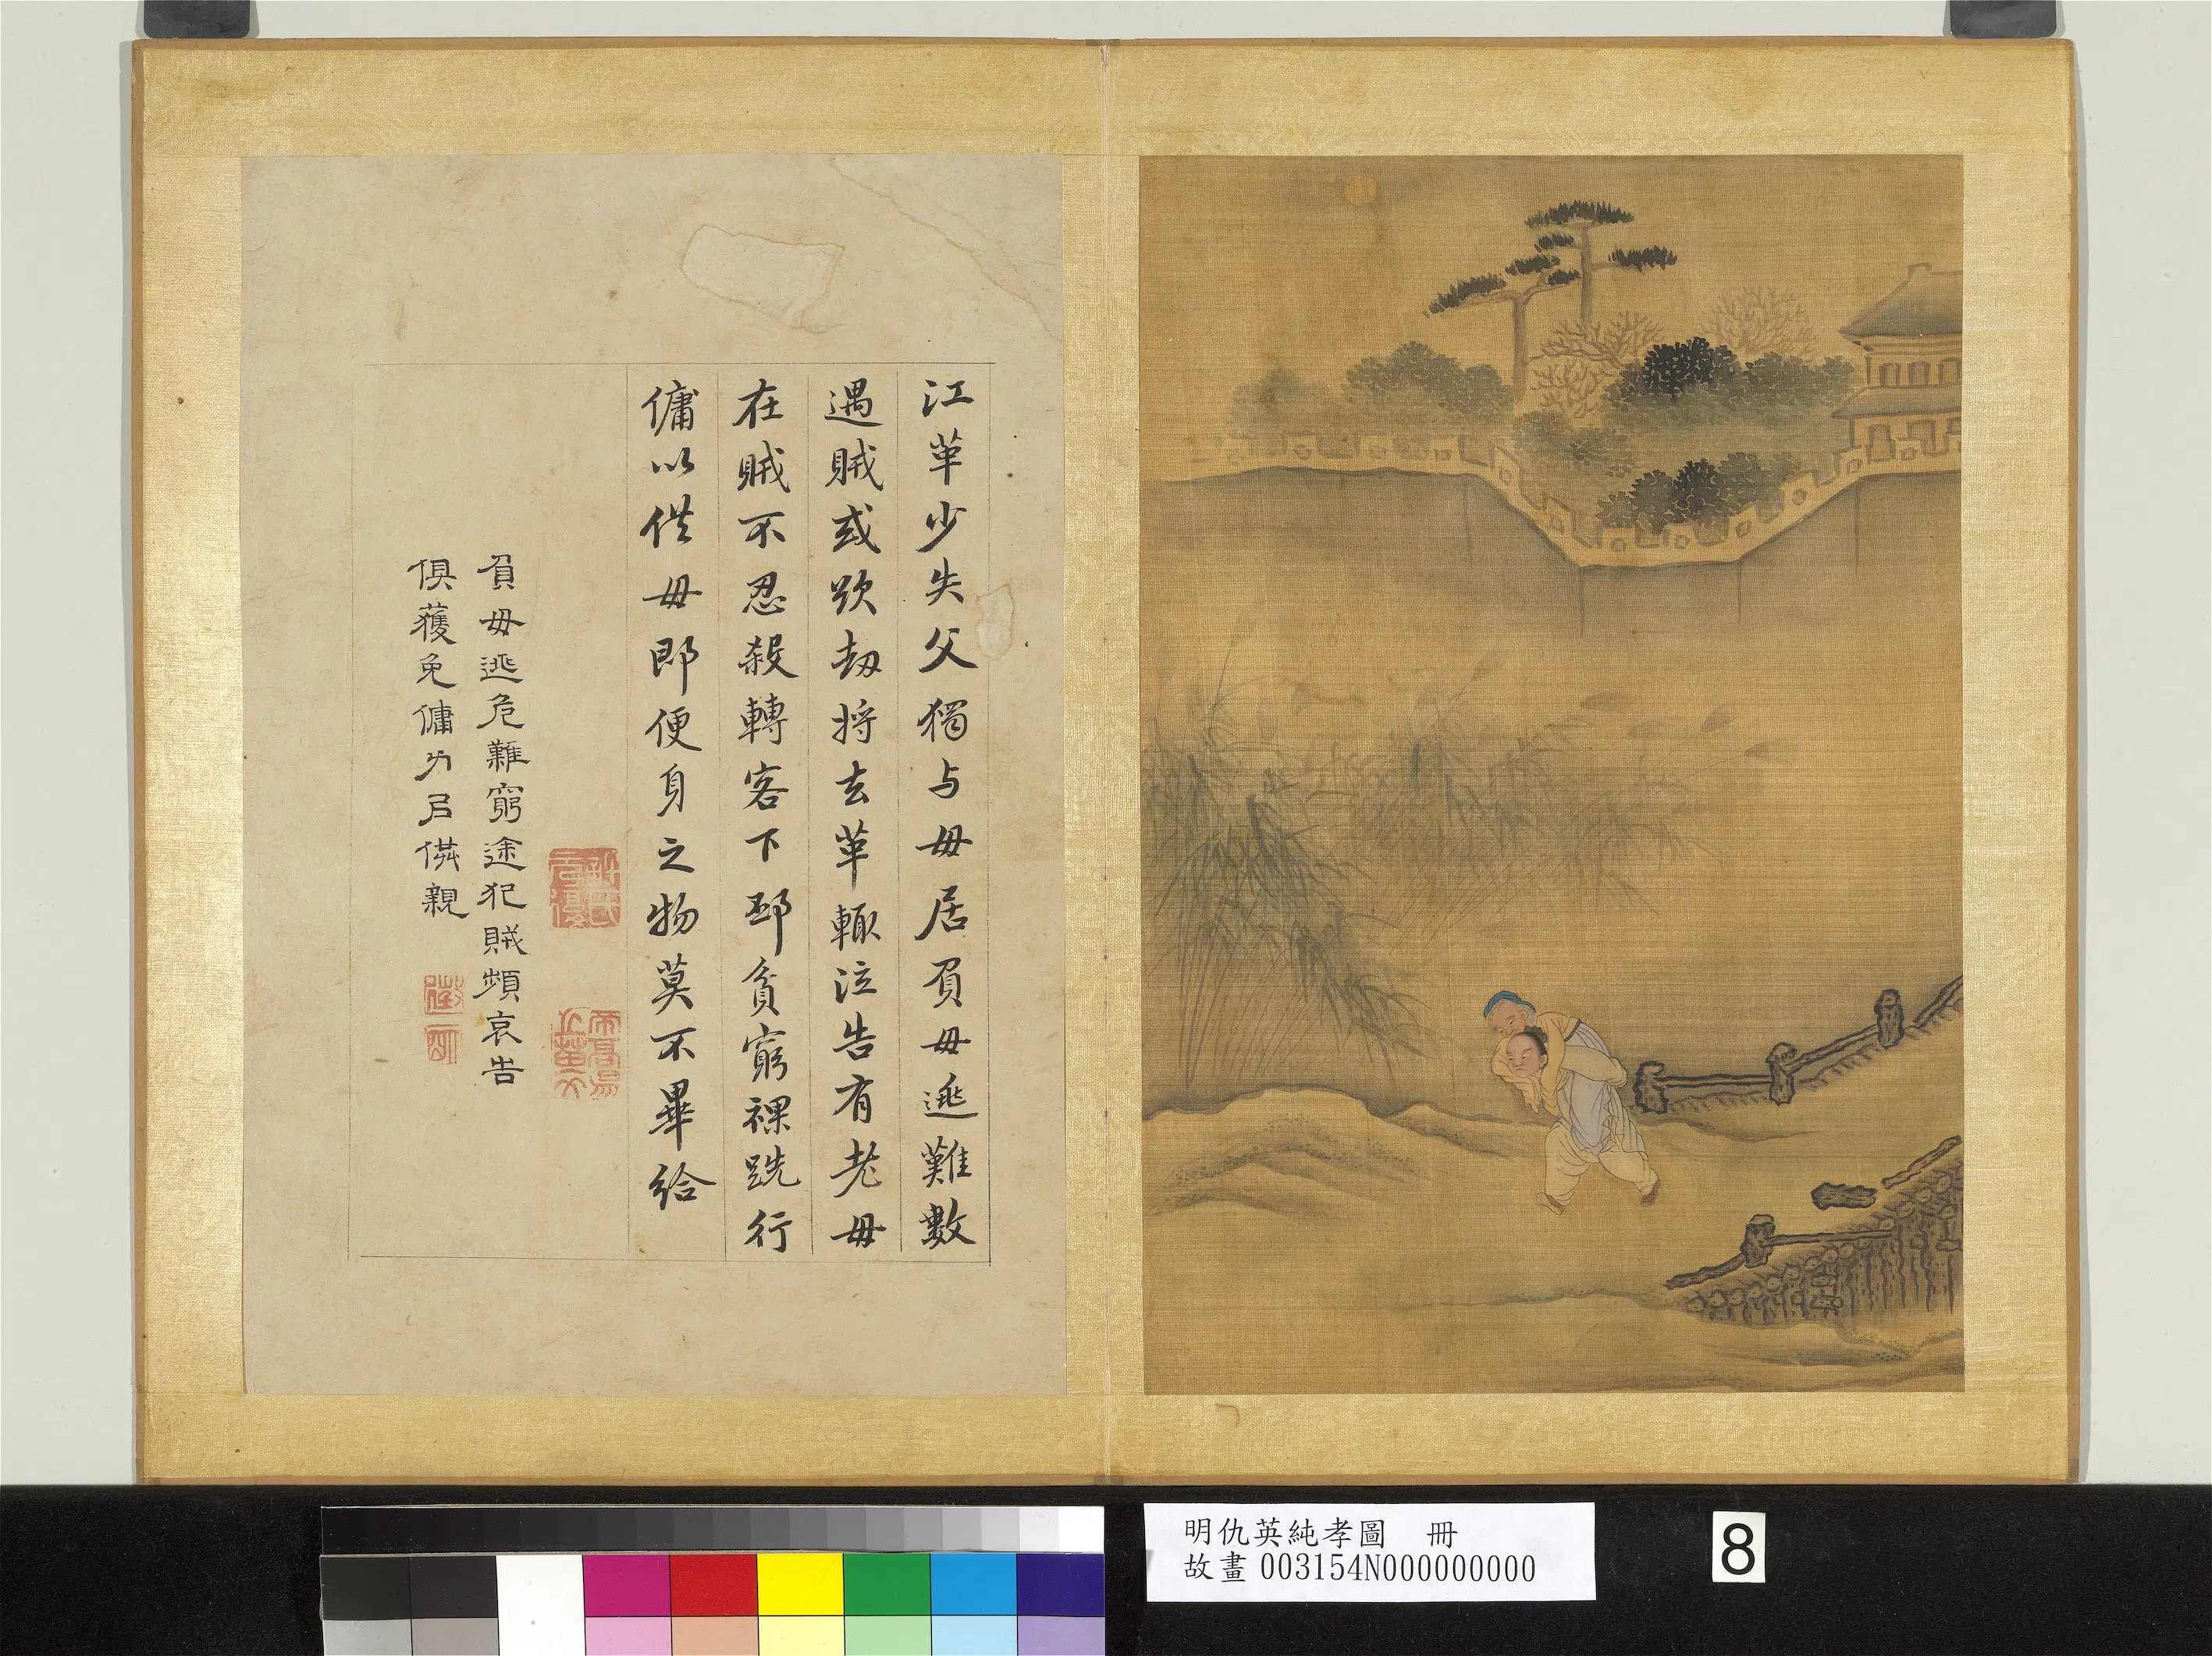 江革少失父獨与母居負母逃難數
遇賊或欲劫將去革輙泣告有老母
在賊不忍殺轉客下邳貧窮裸跣行
傭以供母即便身之物莫不畢給
負母逃危難窮途犯賊頻哀告
俱獲免傭力㠯供親
明仇英純孝圖 冊
故畫 003154N000000000
8